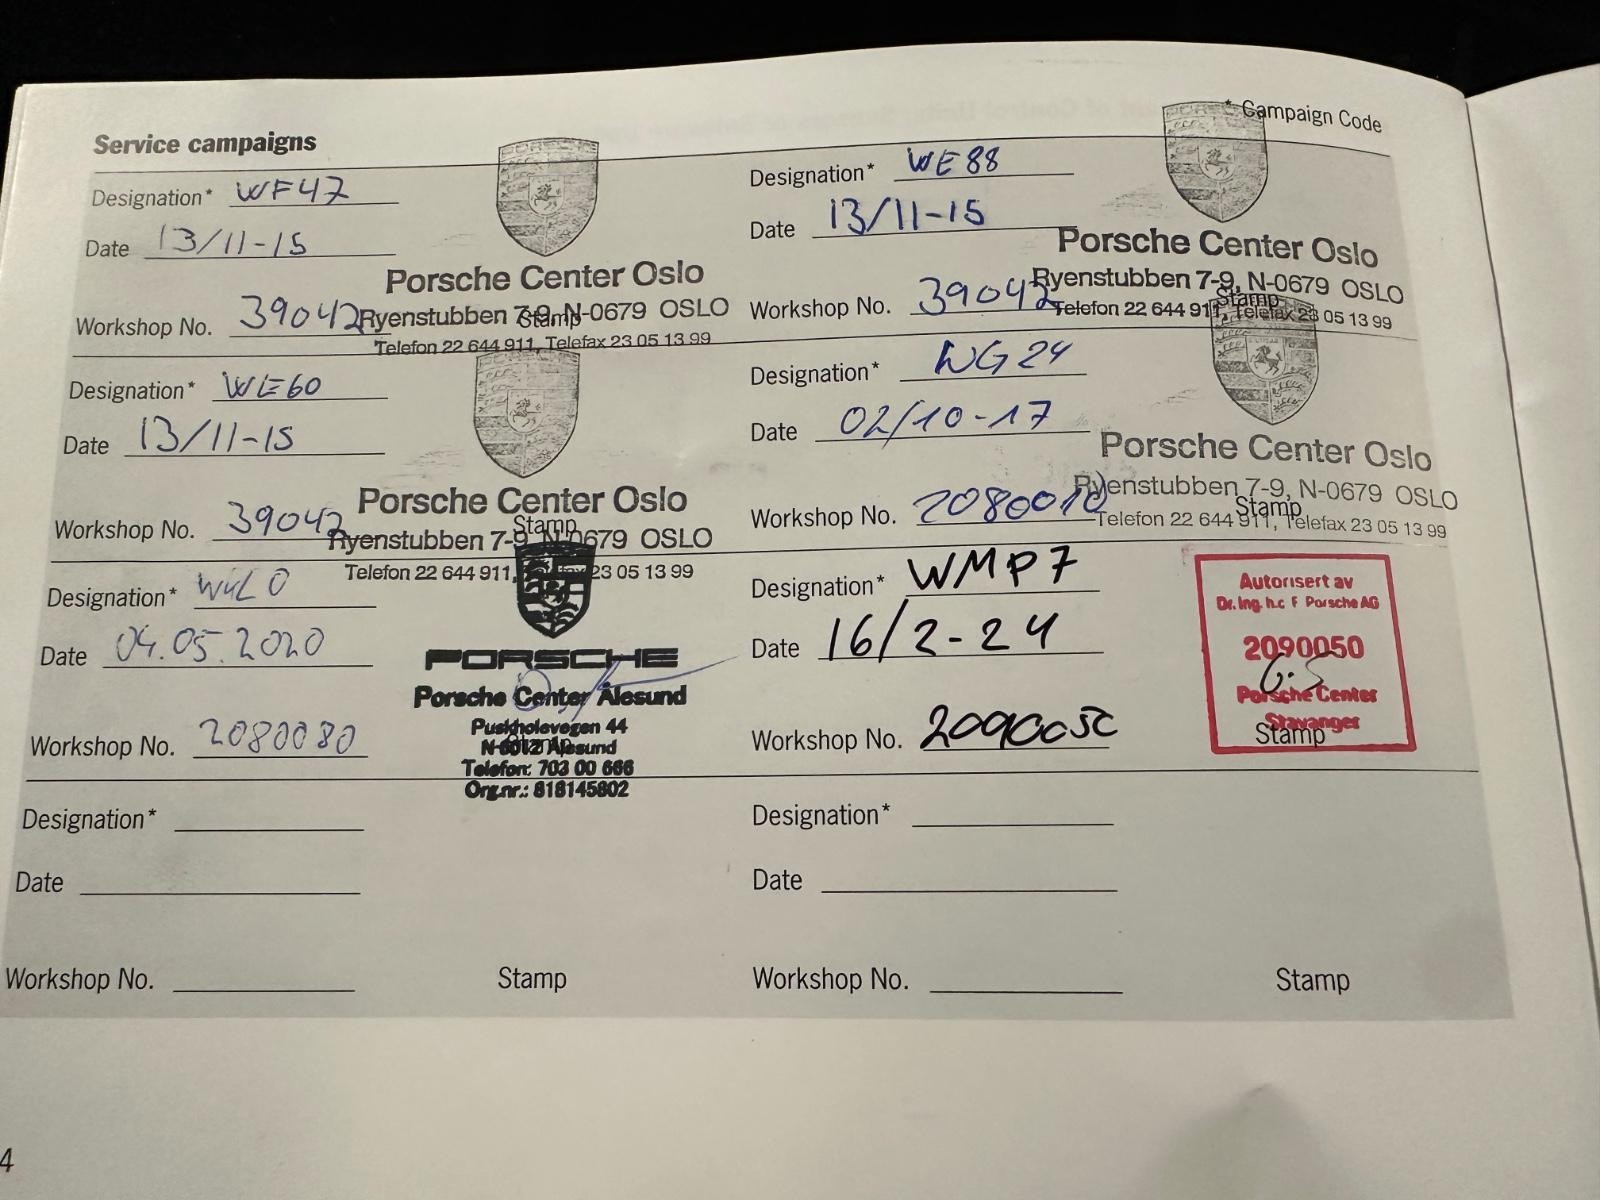 * Campaign Code
Service campaigns
Designation* WF47
Date 13/11-15
Porsche Center Oslo
Ryenstubben 7-9, N-0679 OSLO
Stamp
Telefon 22 644 911, Telefax 23 05 13 99
Workshop No. 39042
Designation* WE88
Date 13/11-15
Porsche Center Oslo
Ryenstubben 7-9, N-0679 OSLO
Stamp
Telefon 22 644 911, Telefax 23 05 13 99
Workshop No. 39042
Designation* WE60
Date 13/11-15
Porsche Center Oslo
Stamp
Ryenstubben 7-9, N-0679 OSLO
Telefon 22 644 911, Telefax 23 05 13 99
Workshop No. 39042
Designation* WG24
Date 02/10-17
Porsche Center Oslo
Ryenstubben 7-9, N-0679 OSLO
Stamp
Telefon 22 644 911, Telefax 23 05 13 99
Workshop No. 2080010
Designation*
Date 04.05.2020
PORSCHE
Porsche Center Ålesund
Puskholevegen 44
N-6012 Ålesund
Telefon: 703 00 666
Org.nr.: 818145802
Workshop No. 2080080
Designation* WMP7
Date 16/2-24
Autorisert av
Dr. Ing. h.c. F. Porsche AG
2090050
Porsche Center
Stavanger
Stamp
Workshop No. 2090050
Designation*
Date
Workshop No.
Stamp
Designation*
Date
Workshop No.
Stamp
4